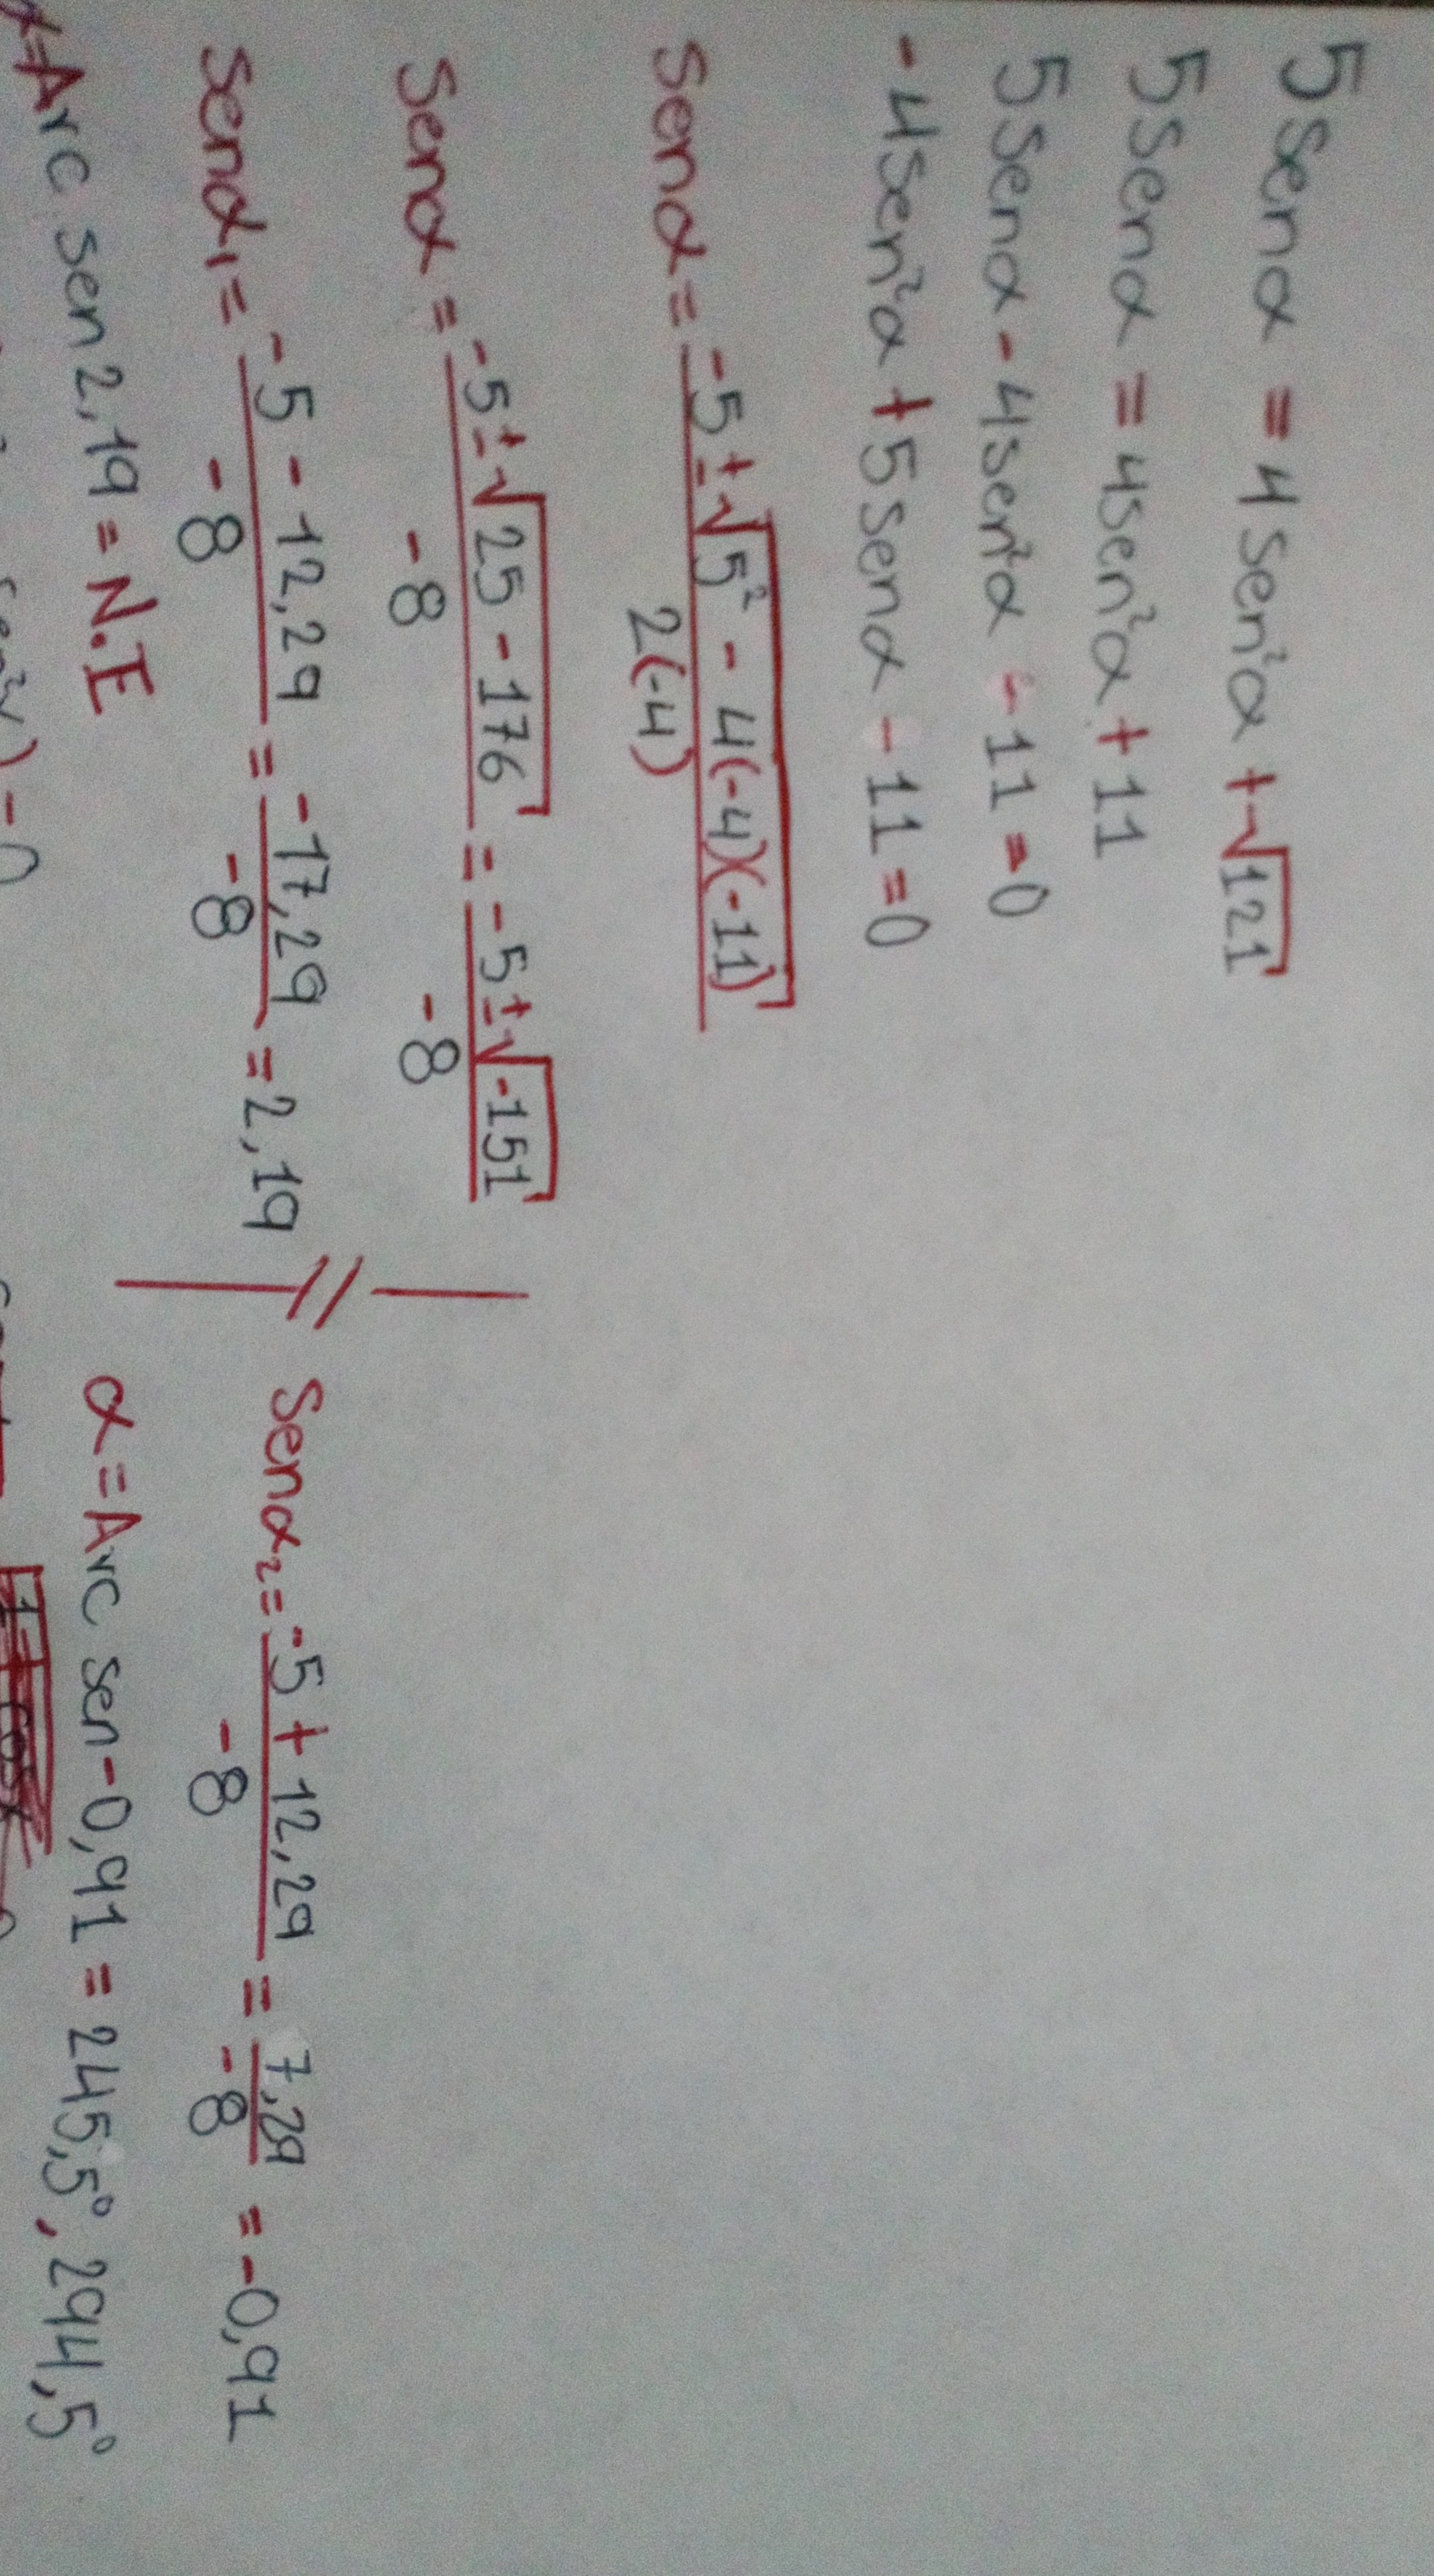 5 sen α = 4 sen²α + √121
5 sen α = 4 sen²α + 11
5 sen α - 4 sen²α - 11 = 0
- 4 sen²α + 5 sen α - 11 = 0
sen α = (-5 ± √(5² - 4(-4)(-11))) / 2(-4)
sen α = (-5 ± √(25 - 176)) / -8 = (-5 ± √-151) / -8
sen α₁ = (-5 - 12,29) / -8 = -17,29 / -8 = 2,19
α = Arc sen 2,19 = N.E
sen α₂ = (-5 + 12,29) / -8 = 7,29 / -8 = -0,91
α = Arc sen -0,91 = 245,5°, 294,5°